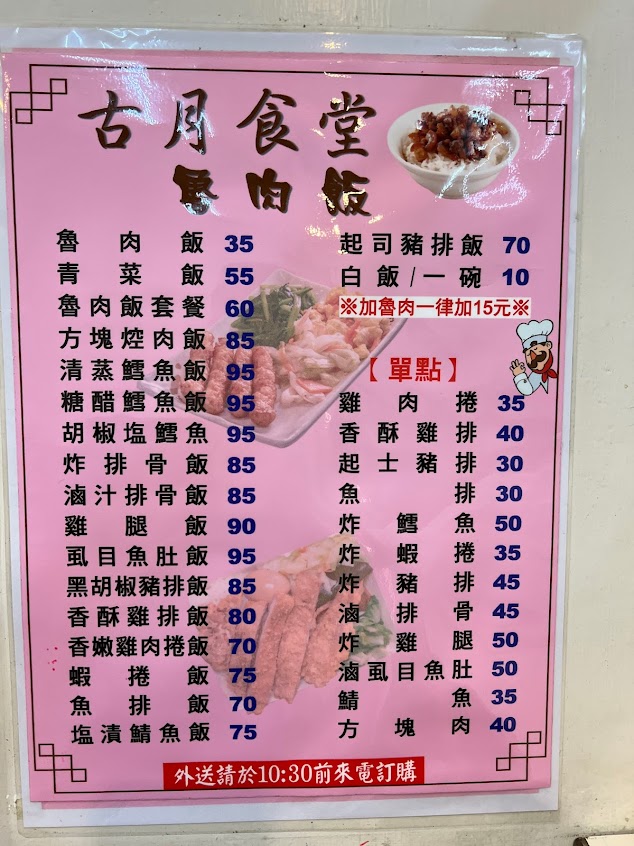 古月食堂
魯肉飯
魯肉飯 35
青菜飯 55
魯肉飯套餐 60
方塊焢肉飯 85
清蒸鱈魚飯 95
糖醋鱈魚飯 95
胡椒塩鱈魚 95
炸排骨飯 85
滷汁排骨飯 85
雞腿飯 90
虱目魚肚飯 95
黑胡椒豬排飯 85
香酥雞排飯 80
香嫩雞肉捲飯 70
蝦捲飯 75
魚排飯 70
塩漬鯖魚飯 75
起司豬排飯 70
白飯/一碗 10
※加魯肉一律加15元※
【單點】
雞肉捲 35
香酥雞排 40
起士豬排 30
魚排 30
炸鱈魚 50
炸蝦捲 35
炸豬排 45
滷排骨 45
炸雞腿 50
滷虱目魚肚 50
鯖魚 35
方塊肉 40
外送請於10:30前來電訂購